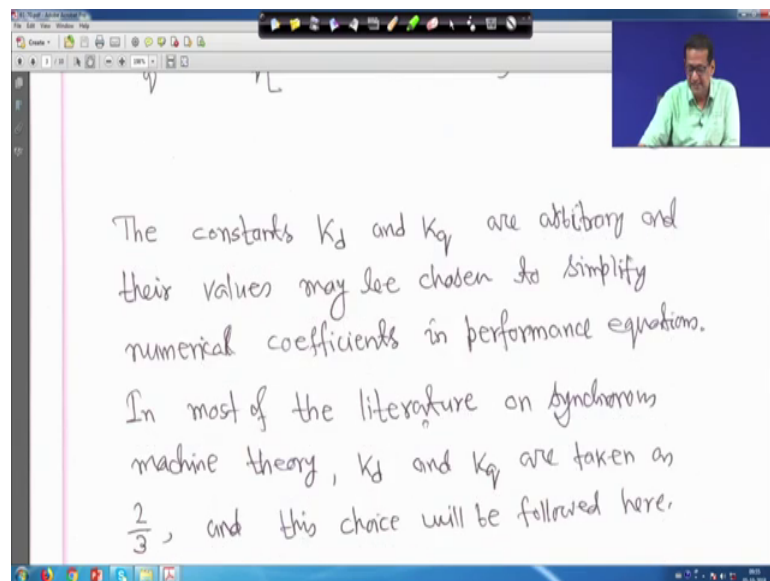 The constants Kd and Kq are arbitrary and
their values may be chosen to simplify
numerical coefficients in performance equations.
In most of the literature on synchronous
machine theory, Kd and Kq are taken as
2/3, and this choice will be followed here.